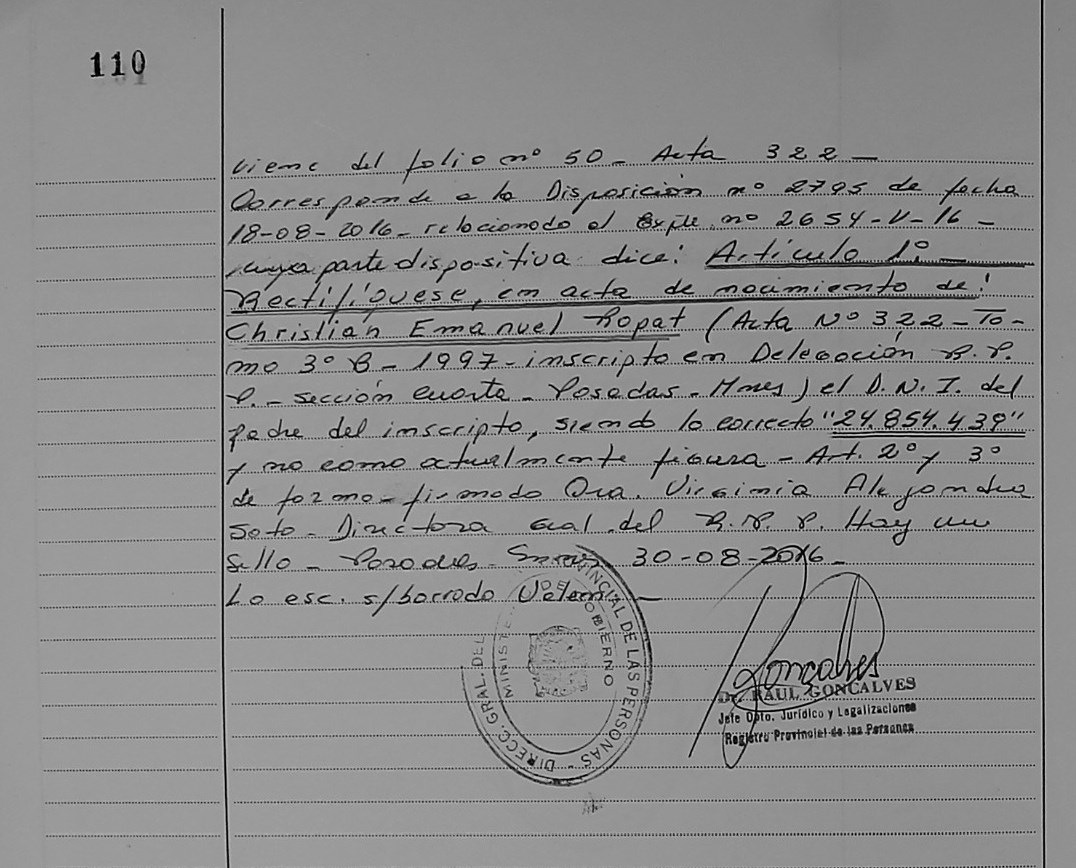 110
Viene del folio nº 50 - Acta 322 -
Corresponde a la Disposición nº 2795 de fecha
18-08-2016 - relacionado al Expte. nº 2654-V-16 -
cuya parte dispositiva dice: Artículo 1º -
Rectifíquese, en acta de nacimiento de:
Christian Emanuel Ropat (Acta Nº 322 - To-
mo 3º B - 1997 - inscripto en Delegación R.P.
P. - sección cuarta - Posadas - Mnes) el D.N.I. del
padre del inscripto, siendo lo correcto "24.854.439"
y no como actualmente figura - Art. 2º y 3º
de forma - firmado Dra. Virginia Alejandra
Soto - Directora Gral. del R.P.P. Hay un
sello - Posadas - 30-08-2016 -
Lo esc. s/borrado Valen -
DIRECC. GRAL. DEL PROVINCIAL DE LAS PERSONAS
MINISTE DE GOBIERNO
Goncalves
Dr. RAUL GONCALVES
Jefe Dpto. Jurídico y Legalizaciones
Registro Provincial de las Personas